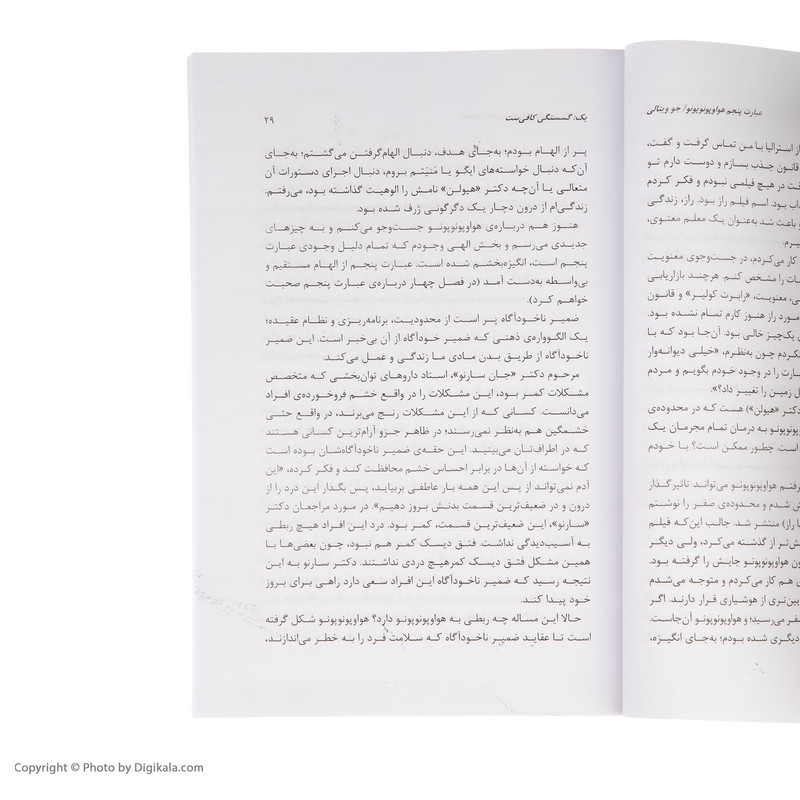 عبارت پنجم هواوپونوپونو/ جو ویتالی
از استرالیا با من تماس گرفت و گفت،
قانون جذب بسازم و دوست دارم تو
در هیچ فیلمی نبودم و فکر کردم
بود. اسم فیلم راز بود. راز، زندگی
و باعث شد به‌عنوان یک معلم معنوی،
کار می‌کردم، در جست‌وجوی معنویت
را مشخص کنم. هرچند بازاریابی
معنویت، «رابرت کولیر» و قانون
مورد راز هنوز کارم تمام نشده بود.
یک‌چیز خالی بود. آن‌جا بود که با
چون به‌نظرم، «خیلی دیوانه‌وار
را در وجود خودم بگویم و مردم
زمین را تغییر داد؟».
دکتر «هیولن») هست که در محدوده‌ی
به درمان تمام مجرمان یک
است. چطور ممکن است؟ با خودم
هواوپونوپونو می‌تواند تاثیرگذار
شدم و محدوده‌ی صفر را نوشتم
راز) منتشر شد. جالب این‌که فیلم
از گذشته می‌کرد، ولی دیگر
هواوپونوپونو جایش را گرفته بود.
هم کار می‌کردم و متوجه می‌شدم
از هوشیاری قرار دارند. اگر
می‌رسید؛ و هواوپونوپونو آن‌جاست.
دیگری شده بودم؛ به‌جای انگیزه،
یک: گسستگی کافی‌ست ۲۹
پر از الهام بودم؛ به‌جای هدف، دنبال الهام‌گرفتن می‌گشتم؛ به‌جای
آن‌که دنبال خواسته‌های ایگو یا مَنیّتم بروم، دنبال اجرای دستورات آن
متعالی یا آن‌چه دکتر «هیولن» نامش را الوهیت گذاشته بود، می‌رفتم.
زندگی‌ام از درون دچار یک دگرگونی ژرف شده بود.
هنوز هم درباره‌ی هواوپونوپونو جست‌وجو می‌کنم و به چیزهای
جدیدی می‌رسم و بخش الهی وجودم که تمام دلیل وجودی عبارت
پنجم است، انگیزه‌بخشم شده است. عبارت پنجم از الهام مستقیم و
بی‌واسطه به‌دست آمد (در فصل چهار درباره‌ی عبارت پنجم صحبت
خواهم کرد).
ضمیر ناخودآگاه پر است از محدودیت، برنامه‌ریزی و نظام عقیده؛
یک الگوواره‌ی ذهنی که ضمیر خودآگاه از آن بی‌خبر است. این ضمیر
ناخودآگاه از طریق بدن مادی ما زندگی و عمل می‌کند.
مرحوم دکتر «جان سارنو»، استاد داروهای توان‌بخشی که متخصص
مشکلات کمر بود، این مشکلات را در واقع خشم فروخورده‌ی افراد
می‌دانست. کسانی که از این مشکلات رنج می‌برند، در واقع حتی
خشمگین هم به‌نظر نمی‌رسند؛ در ظاهر جزو آرام‌ترین کسانی هستند
که در اطراف‌تان می‌بینید. این حقه‌ی ضمیر ناخودآگاه‌شان بوده است
که خواسته از آن‌ها در برابر احساس خشم محافظت کند و فکر کرده، «این
آدم نمی‌تواند از پس این همه بار عاطفی بربیاید، پس بگذار این درد را از
درون و در ضعیف‌ترین قسمت بدنش بروز دهیم». در مورد مراجعان دکتر
«سارنو»، این ضعیف‌ترین قسمت، کمر بود. درد این افراد هیچ ربطی
به آسیب‌دیدگی نداشت. فتق دیسک کمر هم نبود، چون بعضی‌ها با
همین مشکل فتق دیسک کمرهیچ دردی نداشتند. دکتر سارنو به این
نتیجه رسید که ضمیر ناخودآگاه این افراد سعی دارد راهی برای بروز
خود پیدا کند.
حالا این مساله چه ربطی به هواوپونوپونو دارد؟ هواوپونوپونو شکل گرفته
است تا عقاید ضمیر ناخودآگاه که سلامت فرد را به خطر می‌اندازند،
Copyright © Photo by Digikala.com